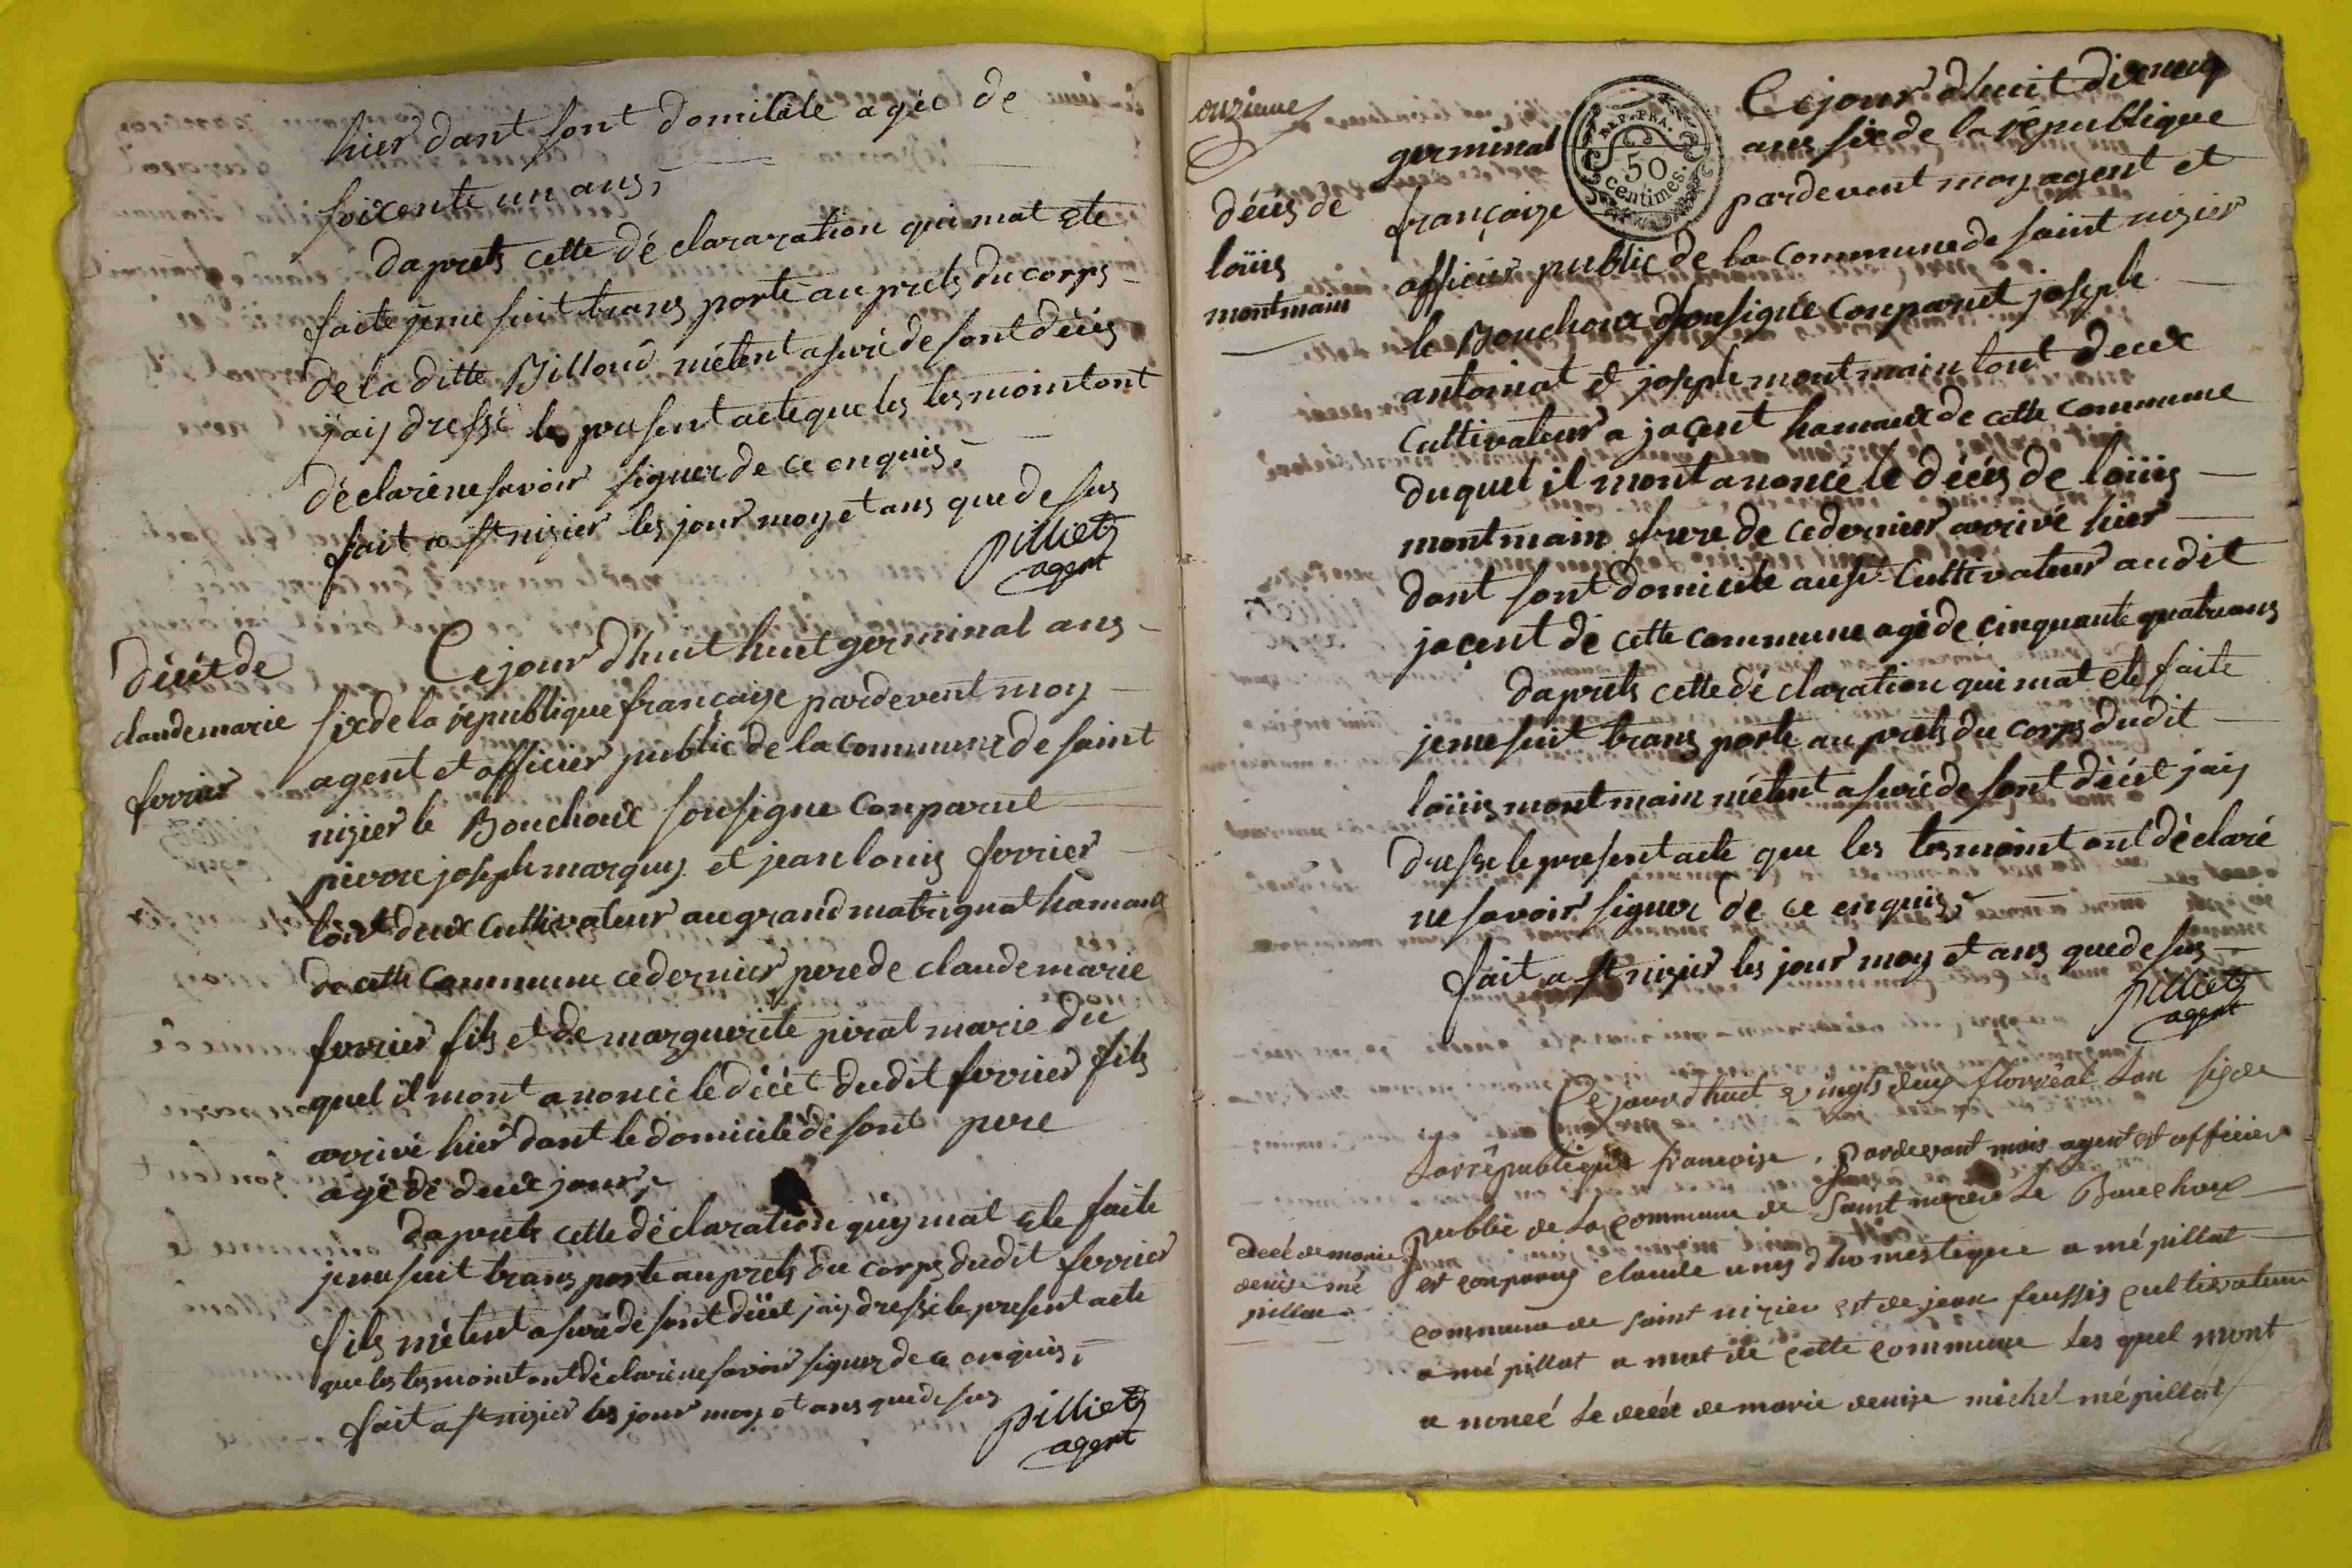 hier dant sont domicile agée de
soixente un ans,
daprets cette déclararation qui mat ete
faite jeme suit trans porté au prets du corps
de la ditte Billoud métent asuré de sont décés
jaij dressé le present acte que les tesmoint ont
déclaré ne savoir signer de ce enquis,
fait a st nizier les jour moy et ans que desus
pilliet
agent
décét de
claude marie
ferrier
Ce jour d'huit huit germinal ans
six de la république françaize pardevent moy
agent et officier public de la commune de saint
nizier le Bouchoux sousigne Conparut
pierre joseph marquis et jean louis ferrier
tout deux cultivateur au grand matrignat hamaux
de cette commune ce dernier pere de claude marie
ferrier fils et de marguerite pirat marie du
quel il mont anoncé le décét dudit ferrier fils
arrivé hier dant le domicile de sont pere
agé de deux jour,
daprets cette déclaration quy mat ete faite
jeme suit trans porte au prets du corps dudit ferrier
fils métent asuré de sont décét jaij dressé le present acte
que les tesmoint ont déclaré ne savoir signer de ce enquis,
fait a st nizier les jour moy et ans que desus
pilliet
agent
onzieme
décés de
loüis
montmain
REP. FRA.
50
centimes.
Ce jour d'huit dix neuf
germinal ans six de la république
françaize pardevent moy agent et
officier public de la commune de saint nizier
le Bouchoux sousigné Conparut joseph
antoinat et joseph montmain tout deux
Cultivateur a jaçent hamaux de cette commune
duquel il mont anoncé le décés de loüis
montmain frere de ce dernier arrivé hier
dant sont domicile ausi Cultivateur au dit
jaçent de cette commune agé de cinquante quatre ans
daprets cette déclaration qui mat ete faite
jeme suit trans porte au prets du corps dudit
loüis montmain métent asuré de sont décét jaij
dresse le present acte que les tesmoint ont déclaré
ne savoir signer de ce enquis,
fait a st nizier les jour moy et ans que desus
pilliet
agent
decé de marie
denise mé
pillat
Ce jourd huit vingts deux florréal lan six de
la république francoise, pardevant mois agent et officier
public de la commune de Saint nizier le Bouchoux
est conparus claude unis dhomestique a mépillat
commune de saint nizier et de jean feussis cultivateur
a mépillat a mat de cette commune les quel mont
a noncé le decét de marie denise michel mépillat